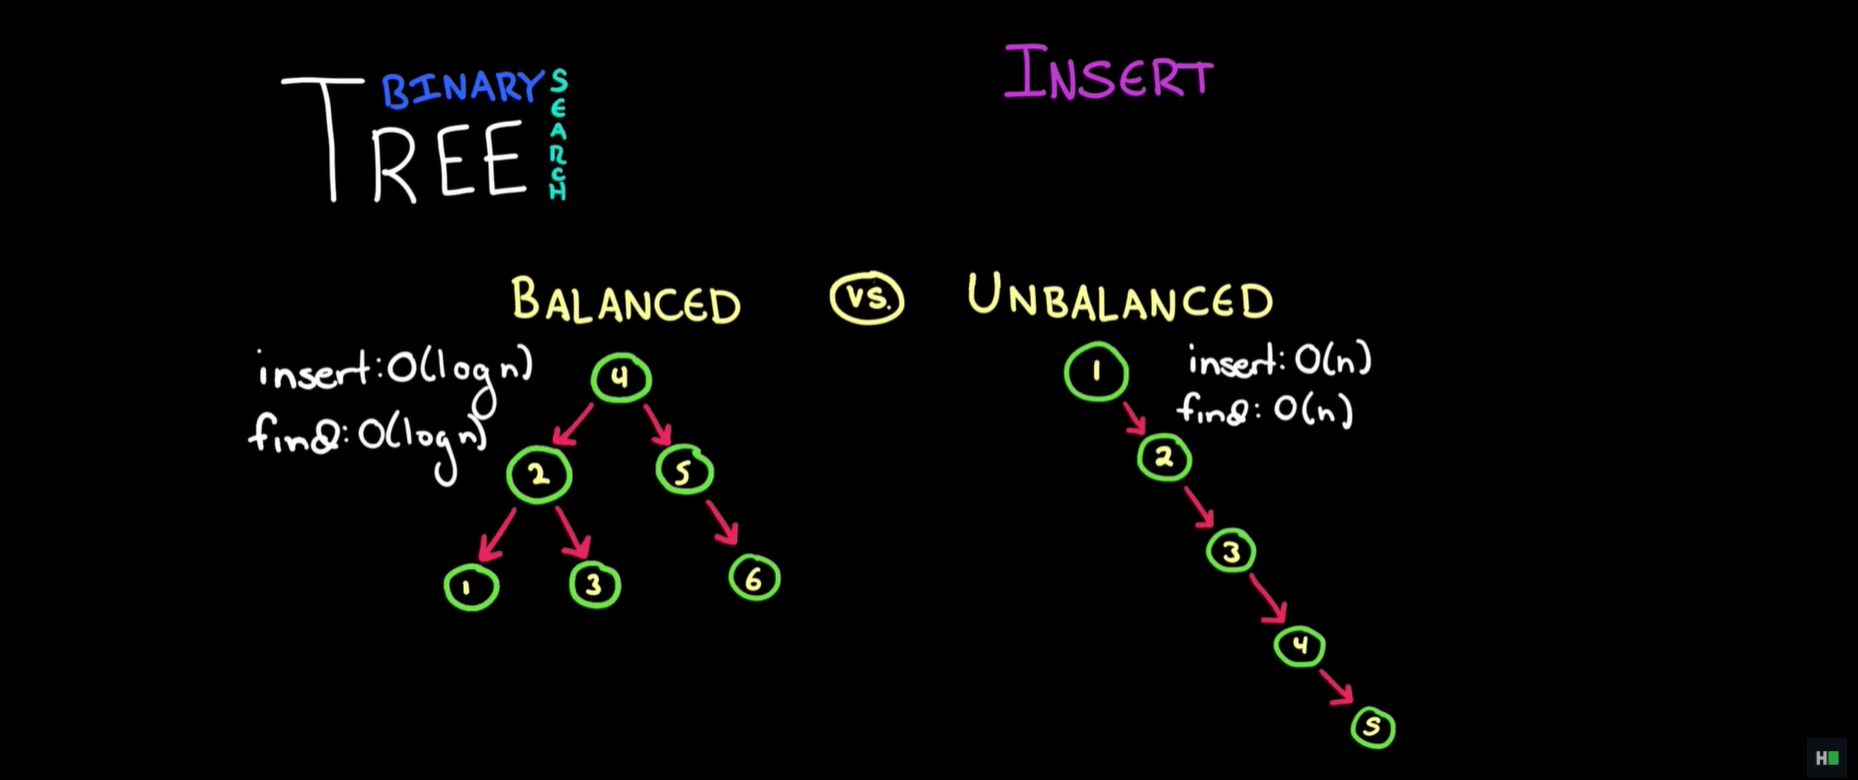 BINARY
TREE
SEARCH
INSERT
BALANCED
VS.
UNBALANCED
insert: O(log n)
find: O(log n)
4
2
5
1
3
6
1
insert: O(n)
find: O(n)
2
3
4
5
H